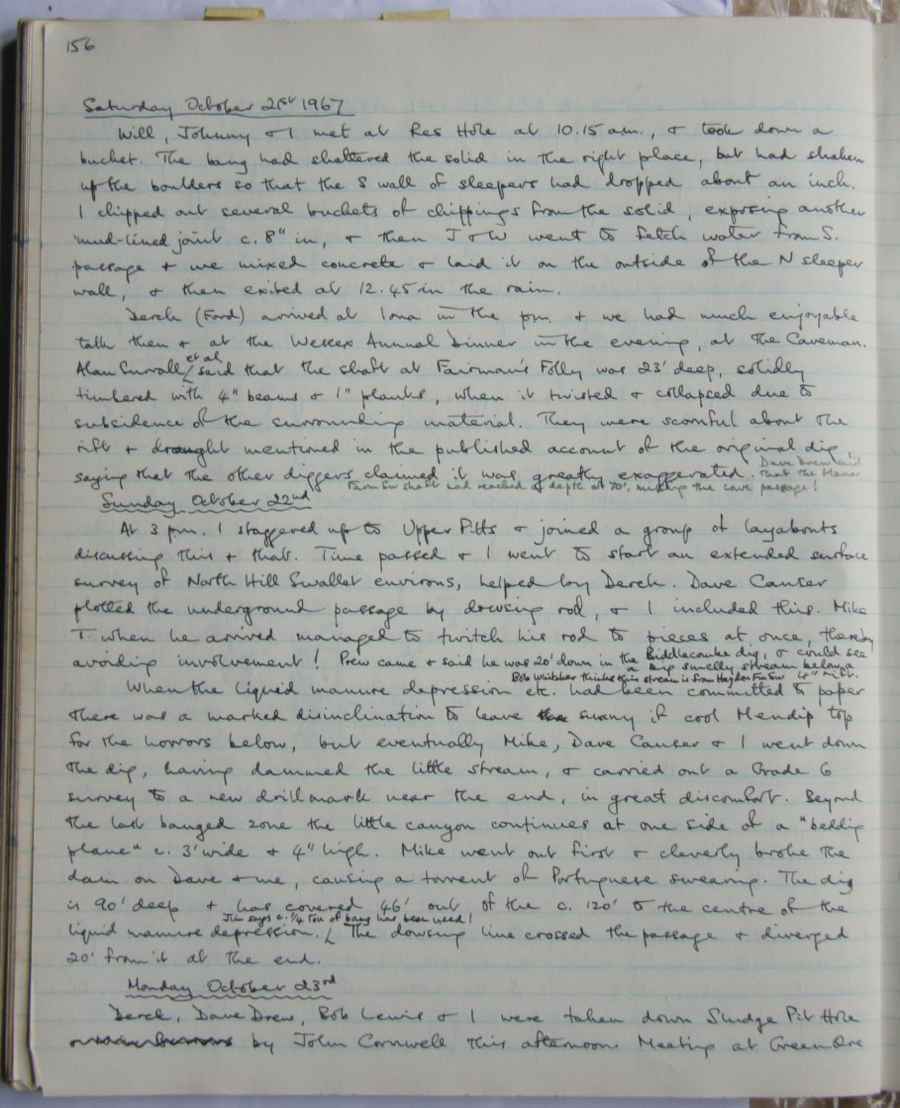 156
Saturday October 21st 1967
Will, Johnny & I met at Res Hole at 10.15 a.m., & took down a
bucket. The bang had shattered the solid in the right place, but had shaken
up the boulders so that the S wall of sleepers had dropped about an inch.
I chipped out several buckets of chippings from the solid, exposing another
mud-lined joint c. 8" in, & then J & W went to fetch water from S.
passage & we mixed concrete & laid it on the outside of the N sleeper
wall, & then exited at 12.45 in the rain.
Derek (Ford) arrived at Iona in the p.m. & we had much enjoyable
talk then & at the Wessex Annual Dinner in the evening, at the Caveman.
Alan Surrall et al said that the shaft at Fairman's Folly was 23' deep, solidly
timbered with 4" beams & 1" planks, when it twisted & collapsed due to
subsidence of the surrounding material. They were scornful about the
rift & draught mentioned in the published account of the original dig
saying that the other diggers claimed it was greatly exaggerated. Dave Drew said that the
Farm Sw shaft had reached a depth of 70', missing the cave passage!
Sunday October 22nd
At 3 p.m. I staggered up to Upper Pitts & joined a group of layabouts
discussing this & that. Time passed & I went to start an extended surface
survey of North Hill Swallet environs, helped by Derek. Dave Causer
plotted the underground passage by dowsing rod, & I included this. Mike
T. when he arrived managed to twitch his rod to pieces at once, thereby
avoiding involvement! Prew came & said he was 20' down in the Biddlecombe dig, & could see
a big smelly stream below a
4" rift. Bob Whitaker thinks this stream is from Haydon Fm Sw
When the liquid manure depression etc. had been committed to paper
there was a marked disinclination to leave sunny if cool Mendip top
for the horrors below, but eventually Mike, Dave Causer & I went down
the dig, having dammed the little stream, & carried out a Grade 6
survey to a new drillmark near the end, in great discomfort. Beyond
the last banged zone the little canyon continues at one side of a "bedding
plane" c. 3' wide & 4" high. Mike went out first & cleverly broke the
dam on Dave & me, causing a torrent of Portuguese swearing. The dig
is 90' deep & has covered 46' out of the c. 120' to the centre of the
liquid manure depression. Jim says c. 1/4 ton of bang has been used! The dowsing line crossed the passage & diverged
20' from it at the end.
Monday October 23rd
Derek, Dave Drew, Bob Lewis & I were taken down Sludge Pit Hole
by John Cornwell this afternoon. Meeting at Green Ore